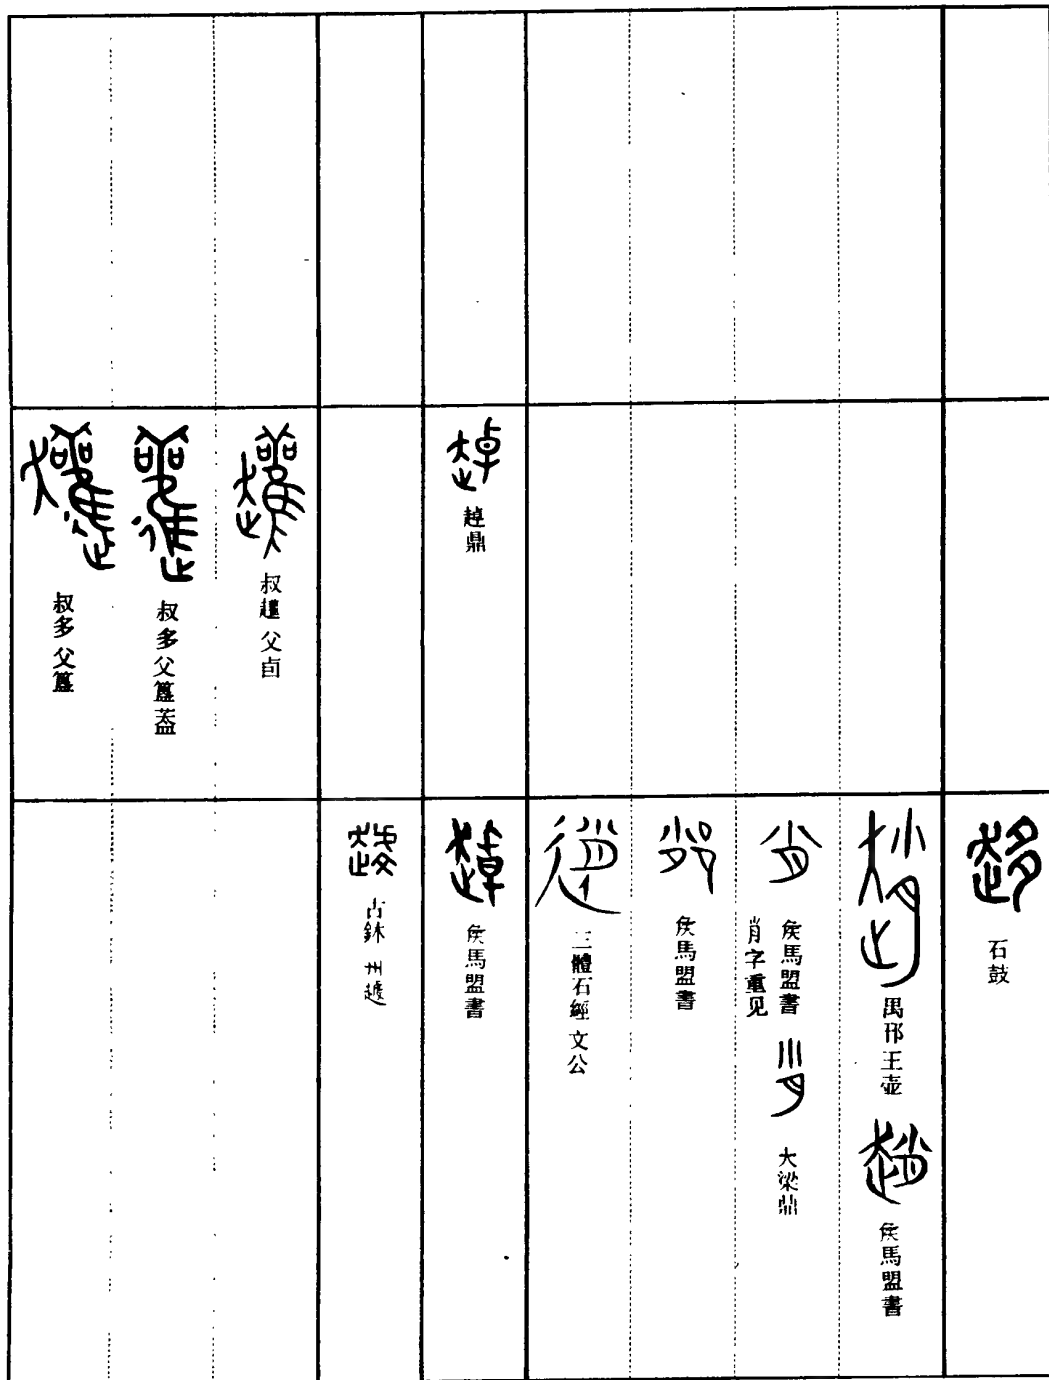 石鼓
禺邗王壺
侯馬盟書
侯馬盟書
肖字重见
大梁鼎
侯馬盟書
三體石經 文公
趠鼎
侯馬盟書
古鉥
叔趯父卣
叔多父簋蓋
叔多父簋